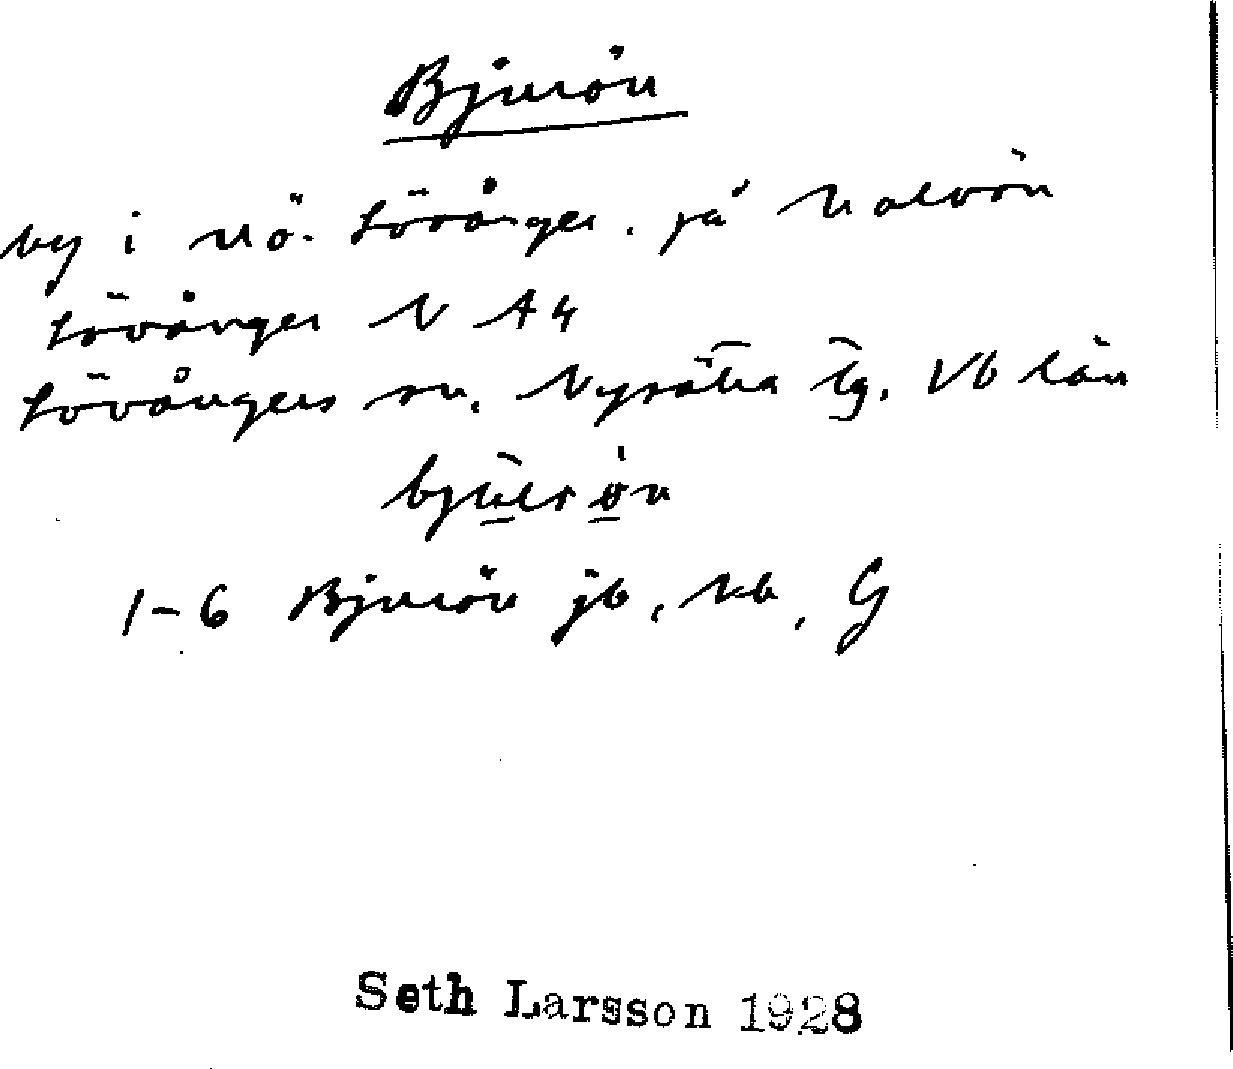 Bjurön
by i nö. Lövånger. på halvön
Lövånger N A 4
Lövångers sn. Nysätra tg. Vb län
bjūrön
1-6 Bjurön jb, kb, G
Seth Larsson 1928